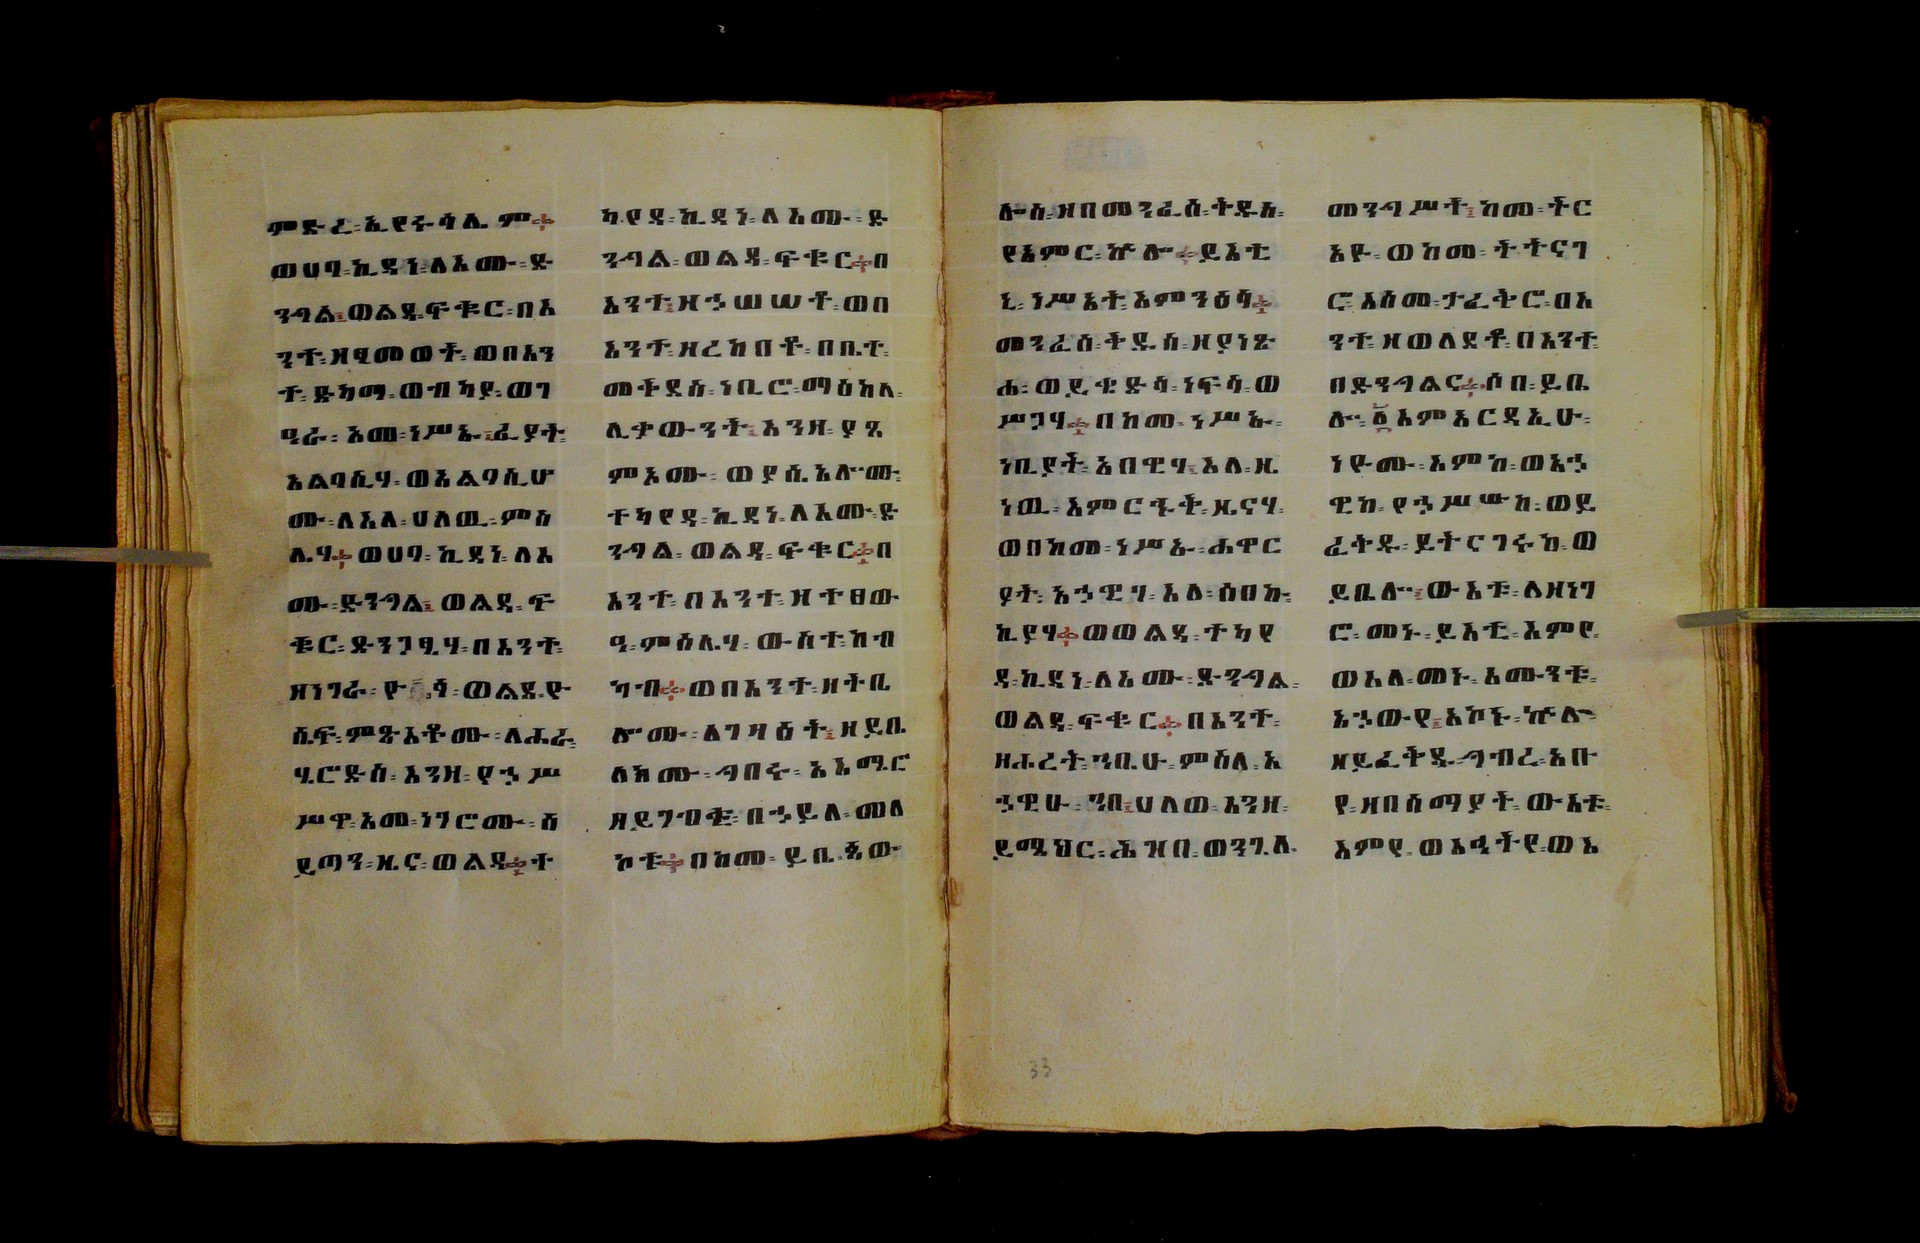 ምድረ፡ ኢየሩሳሌም።
ወሀባ፡ ኪዳነ፡ ለእሙ፡ ድ
ንግል፡ ወልዳ፡ ፍቁር፡ በእ
ንተ፡ ዘፂመወት፡ ወበእን
ተ፡ ድካማ፡ ወብካያ፡ ወገ
ዓራ፡ አመ፡ ነሥኡ፡ ፈያት፡
አልባሲሃ፡ ወአልባሲሆ
ሙ፡ ለእለ፡ ሀለዉ፡ ምስ
ሌሃ። ወሀባ፡ ኪዳነ፡ ለእ
ሙ፡ ድንግል፡ ወልዳ፡ ፍ
ቁር፡ ድንጋፂሃ፡ በእንተ፡
ዘነገራ፡ ወልደ፡ ዮ
ሴፍ፡ ምጽአቶሙ፡ ለሐራ
ሄሮድስ፡ እንዘ፡ የኃሥ
ሥዋ፡ አመ፡ ነገሮሙ፡ ሰ
ይጣን፡ ዜና፡ ወልዳ። ተ
ካየዳ፡ ኪዳነ፡ ለእሙ፡ ድ
ንግል፡ ወልዳ፡ ፍቁር። በ
እንተ፡ ዘኃሠሠቶ፡ ወበ
እንተ፡ ዘረከበቶ፡ በቤተ፡
መቅደስ፡ ነቢሮ፡ ማዕከለ፡
ሊቃውንት፡ እንዘ፡ ያጸ
ምኦሙ፡ ወያሴአሎሙ፡
ተካየዳ፡ ኪዳነ፡ ለእሙ፡ ድ
ንግል፡ ወልዳ፡ ፍቁር። በ
እንተ፡ በእንተ፡ ዘተፀው
ዓ፡ ምስሌሃ፡ ውስተ፡ ከብ
ካብ። ወበእንተ፡ ዘትቤ
ሎሙ፡ ለገዛዕት፡ ዘይቤ
ለክሙ፡ ግበሩ፡ አእሚሮ
ዘይገብቁ፡ በኃይለ፡ መለ
ኮቱ። በከመ፡ ይቤ፡ ጳው
ሎስ፡ ዘበመንፈስ፡ ቅዱስ፡
የአምር፡ ኵሎ። ይእቲ
ኒ፡ ነሥአት፡ እምንዕሳ።
መንፈሰ፡ ቅዱሰ፡ ዘያነጽ
ሖ፡ ወይቄድሳ፡ ነፍሳ፡ ወ
ሥጋሃ። በከመ፡ ነሥኡ፡
ነቢያት፡ አበዊሃ፡ እለ፡ ዜ
ነዉ፡ እምርኁት፡ ዜናሃ፡
ወበከመ፡ ነሥኡ፡ ሐዋር
ያት፡ አኃዊሃ፡ እለ፡ ሰበኩ፡
ኪያሃ። ወወልዳ፡ ተካየ
ዳ፡ ኪዳነ፡ ለእሙ፡ ድንግል፡
ወልዳ፡ ፍቁር። በእንተ፡
ዘሐረት፡ ኀቤሁ፡ ምስለ፡ አ
ኃዊሁ፡ ኀበ፡ ሀለወ፡ እንዘ፡
ይሜህር፡ ሕዝበ፡ ወንጌለ፡
መንግሥት፡ ከመ፡ ትር
አዮ፡ ወከመ፡ ትትናገ
ሮ፡ እስመ፡ ታፈቅሮ፡ በእ
ንተ፡ ዘወለደቶ፡ በእንተ፡
በድንግልና። ሶበ፡ ይቤ
ሎ፡ ፩እምአርዳኢሁ፡
ነዮሙ፡ እምከ፡ ወአኃ
ዊከ፡ የኃሥሡከ፡ ወይ
ፈቅዱ፡ ይትናገሩከ፡ ወ
ይቤሎ፡ ውእቱ፡ ለዘነገ
ሮ፡ መኑ፡ ይእቲ፡ እምየ፡
ወእለ፡ መኑ፡ እሙንቱ፡
አኃውየ፡ አኮኑ፡ ኵሎ
ዘይፈቅዱ፡ ግብረ፡ አቡ
የ፡ ዘበሰማያት፡ ውእቱ፡
እምየ፡ ወአኃትየ፡ ወአ